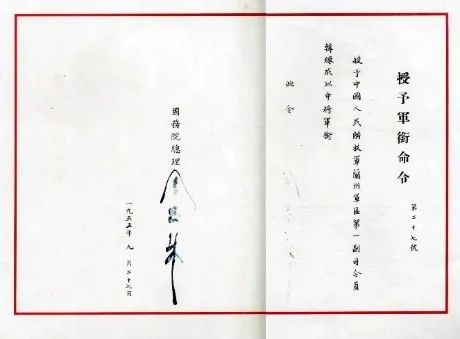 授予軍銜命令
第二十七號
授予中國人民解放軍蘭州軍區第一副司令員
韓練成以中將軍銜
此令
國務院總理
周恩來
一九五五年九月二十七日